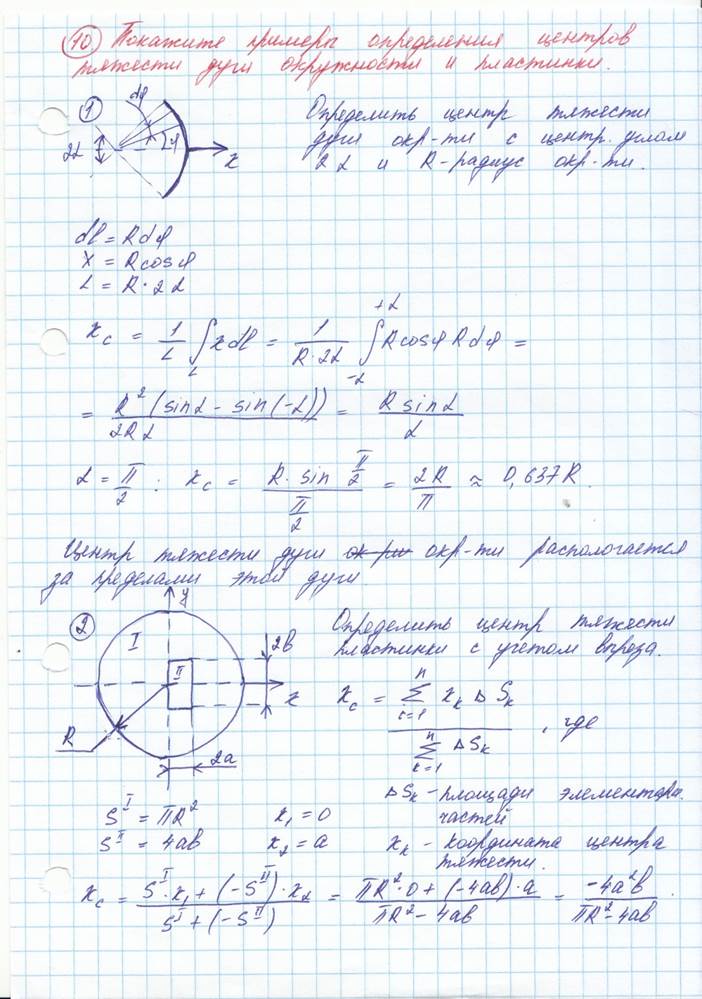 10. Покажите примеры определения центров
тяжести дуги окружности и пластинки.
1
dφ
φ
2α
x
Определить центр тяжести
дуги окр-ти с центр. углом
2α и R-радиус окр-ти.
dl = Rdφ
X = Rcosφ
L = R·2α
x_c = 1/L ∫_L xdl = 1/(R·2α) ∫_{-α}^{+α} Rcosφ Rdφ =
= R²(sinα - sin(-α))/(2Rα) = R sinα/α
α = π/2 : x_c = (R·sin π/2)/(π/2) = 2R/π ≈ 0,637R.
Центр тяжести дуги окр-ти распологается
за пределами этой дуги.
2
y
I
II
2b
x
R
2a
Определить центр тяжести
пластинки с учетом выреза.
x_c = (Σ_{i=1}^{n} x_k ΔS_k)/(Σ_{k=1}^{n} ΔS_k) , где
ΔS_k - площади элементарн.
частей
x_k - координата центра
тяжести.
S^I = πR² x_1 = 0
S^II = 4ab x_2 = a
x_c = (S^I·x_1 + (-S^II)·x_2)/(S^I + (-S^II)) = (πR²·0 + (-4ab)·a)/(πR² - 4ab) = -4a²b/(πR² - 4ab).